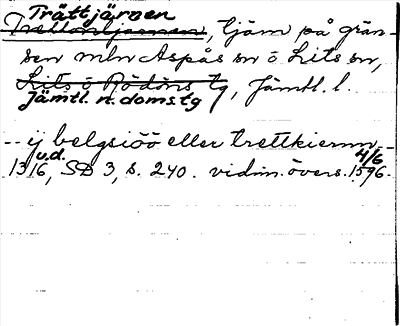 Trättjärnen
Trettontjärnen, tjärn på grän-
sen mln Aspås sn o. Lits sn,
Lits o. Rödöns tg, Jämtl. l.
Jämtl. n. doms.tg
-- ij belgsiöö eller trettkiernn --
u.d. 4/6
1316, SD 3, s. 240. vidim. övers. 1596.